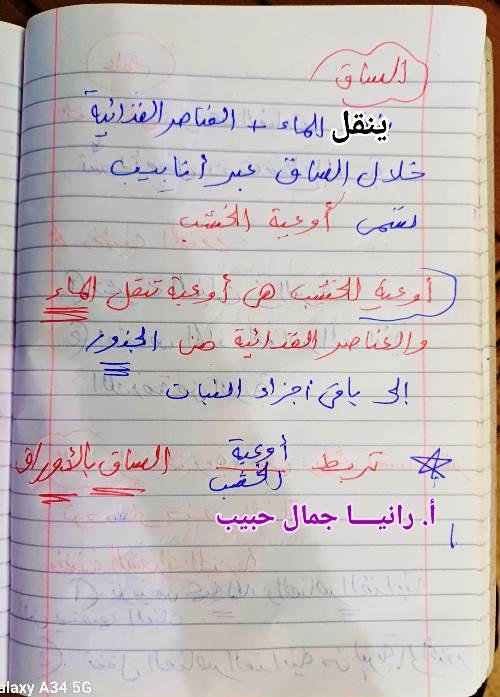 الساق
ينقل الماء + العناصر الغذائية
خلال الساق عبر أنابيب
تسمى أوعية الخشب
أوعية الخشب هي أوعية تنقل الماء
والعناصر الغذائية من الجذور
إلى باقي أجزاء النبات
تربط أوعية الخشب الساق بالأوراق
أ. رانيــا جمال حبيب
alaxy A34 5G